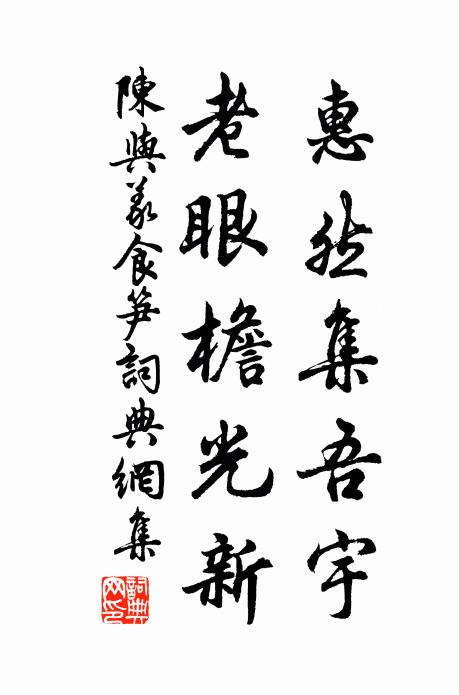 惠然集吾宇
老眼檐光新
陳與義食笋詞典網集
詞典網印